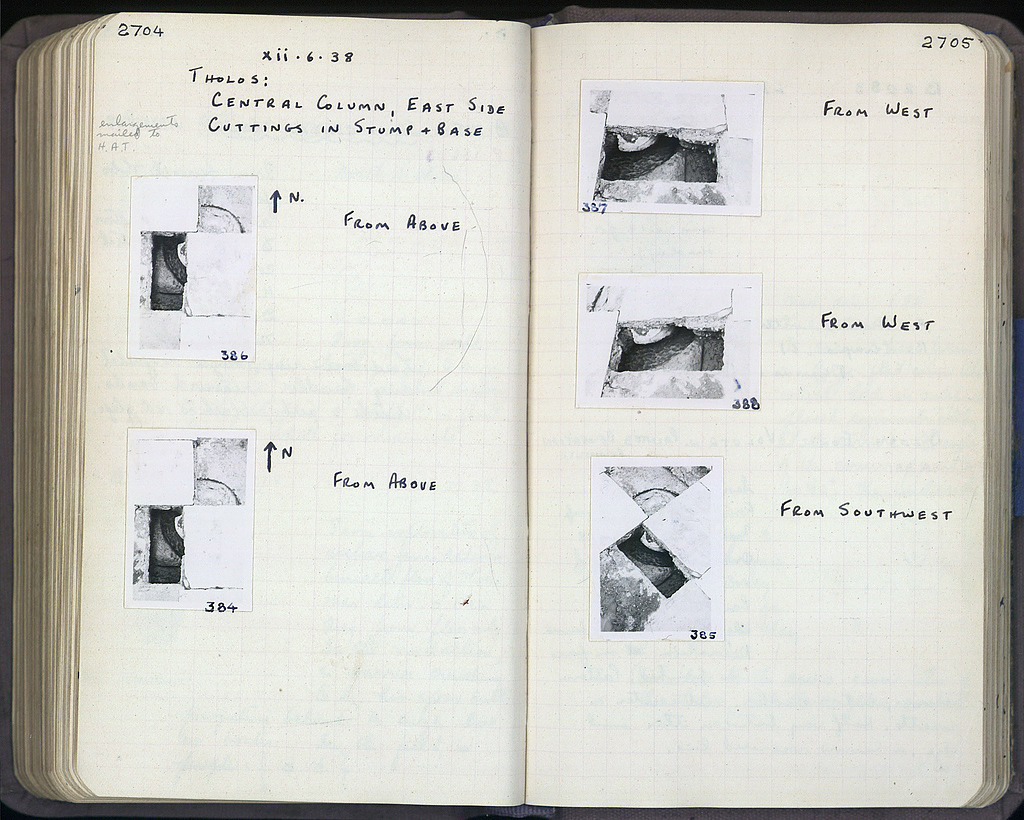 2704
xii·6·38
THOLOS:
CENTRAL COLUMN, EAST SIDE
CUTTINGS IN STUMP + BASE
enlargements
mailed to
H.A.T.
↑ N.
FROM ABOVE
386
↑ N
FROM ABOVE
384
2705
FROM WEST
387
FROM WEST
388
FROM SOUTHWEST
385